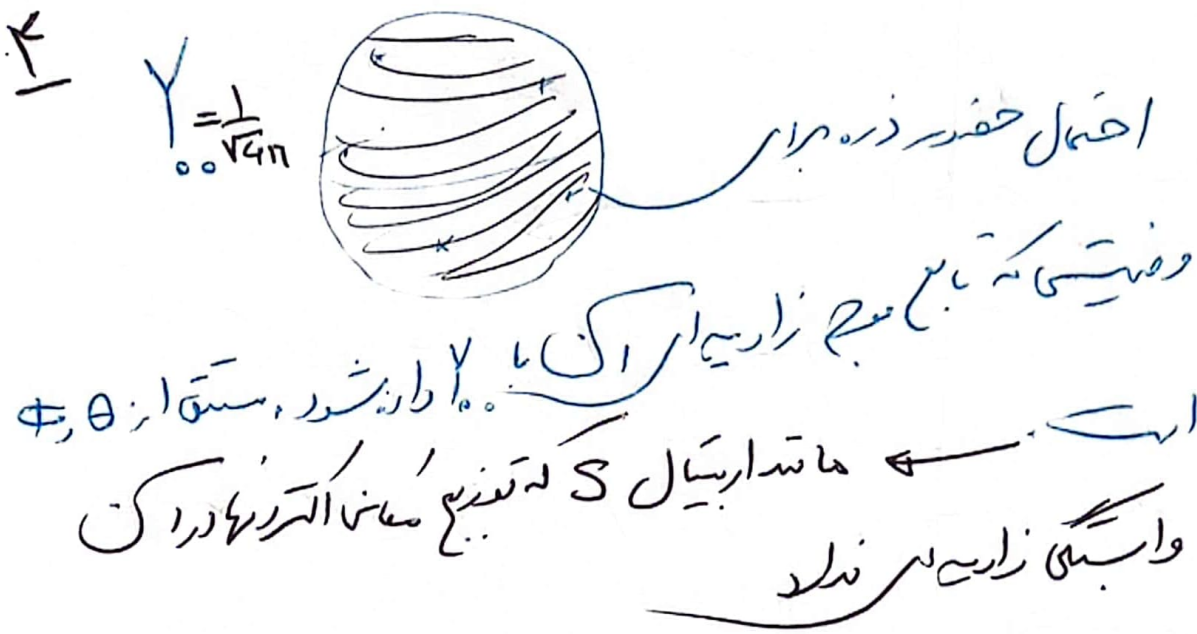 ۴.
Y₀₀ = 1/√4π
احتمال حضور ذره برای
وضعیتی که تابع موج زاویه ای آن با Y₀₀ داده شود، مستقل از θ و φ
است. ← مانند اربیتال S که توزیع مکانی الکترونها در آن
وابستگی زاویه ای ندارد